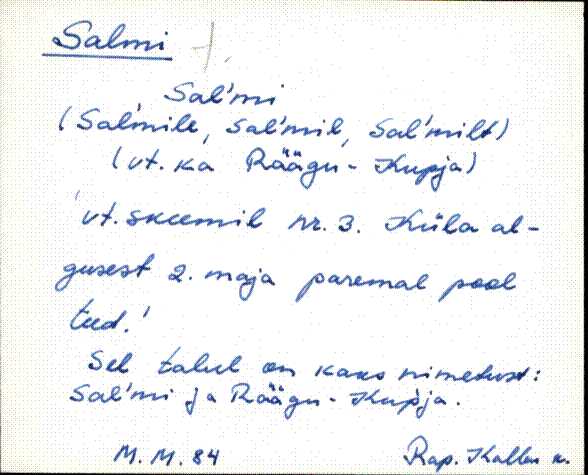 Salmi
Sal'mi
(Sal'mile, Sal'mil, Sal'milt)
(vt. ka Räägu-Kupja)
'vt. skeemil nr. 3. Küla al-
gusest 2. maja paremal pool
teed.'
Sel talul on kaks nimetust:
Sal'mi ja Räägu-Kupja.
M. M. 84
Rap. Kallu k.